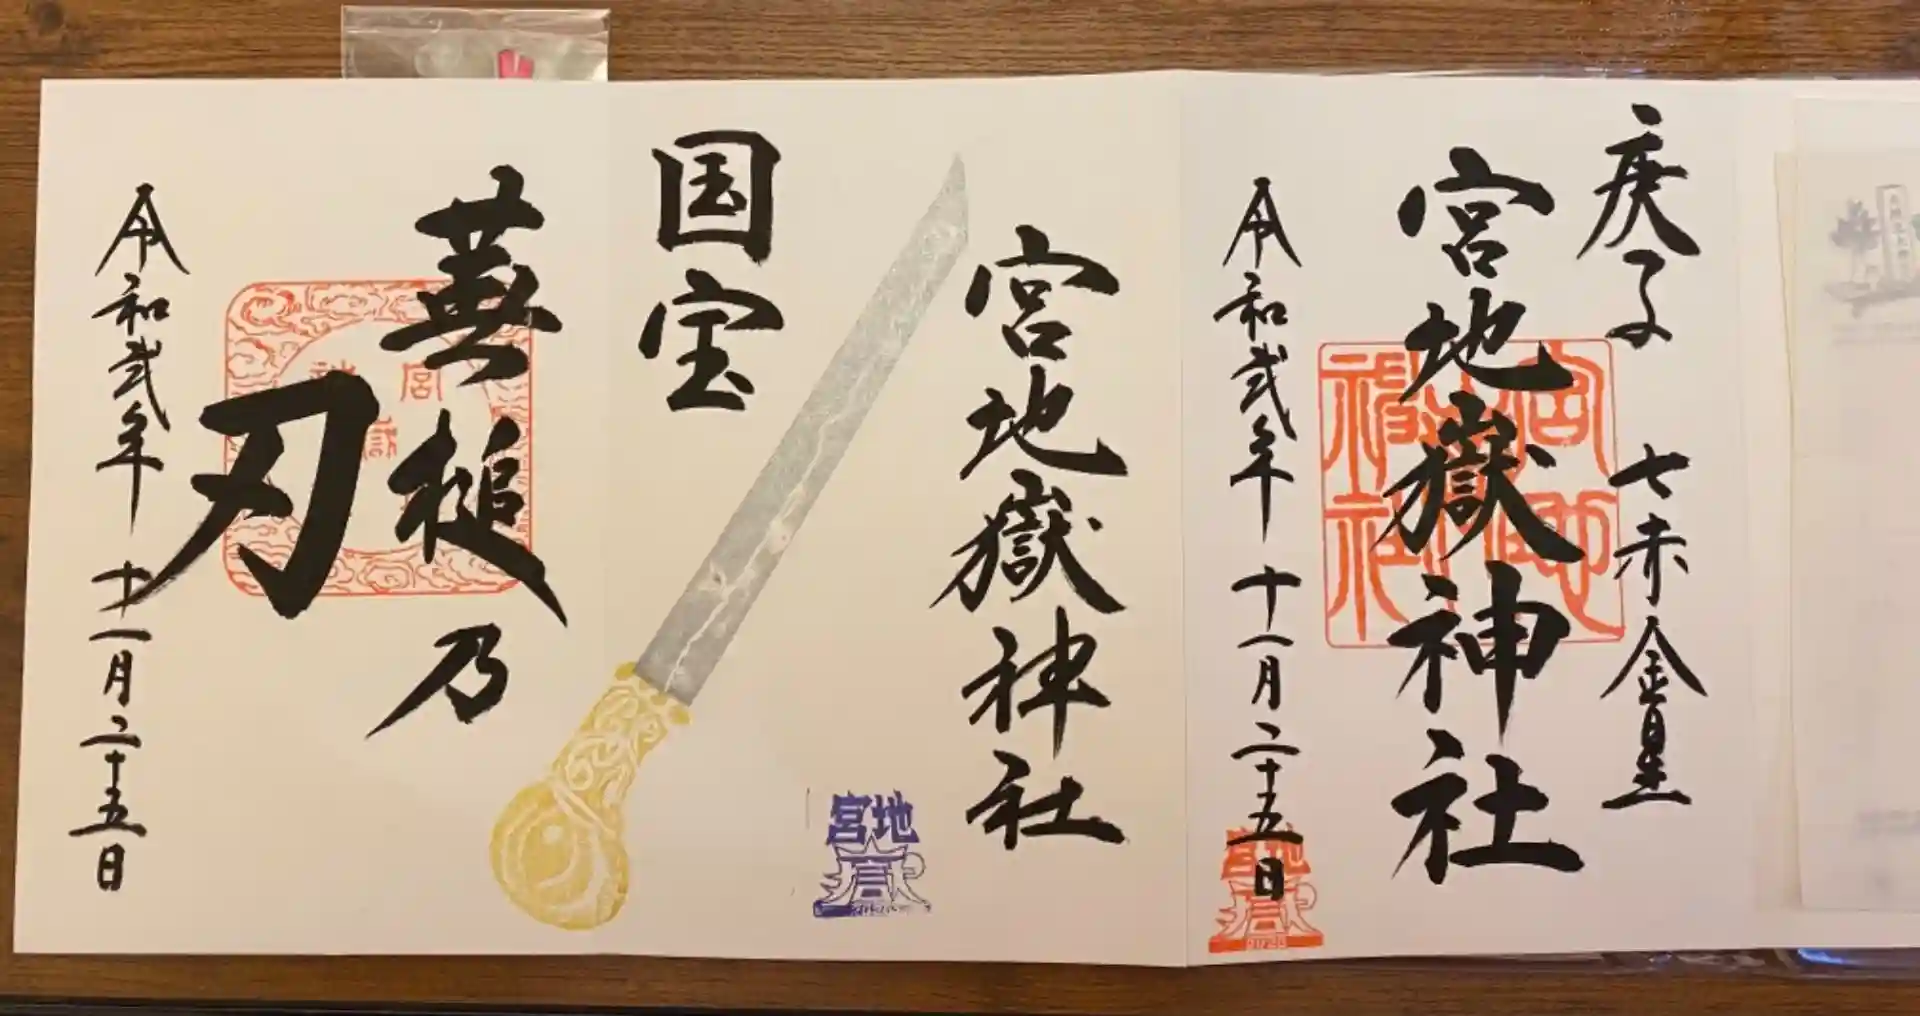 庚子
七赤金星
宮地嶽神社
令和弐年
十一月二十五日
宮地嶽神社
宮地嶽
宮地嶽神社
国宝
宮地嶽
乃
刃
令和弐年
十一月二十五日